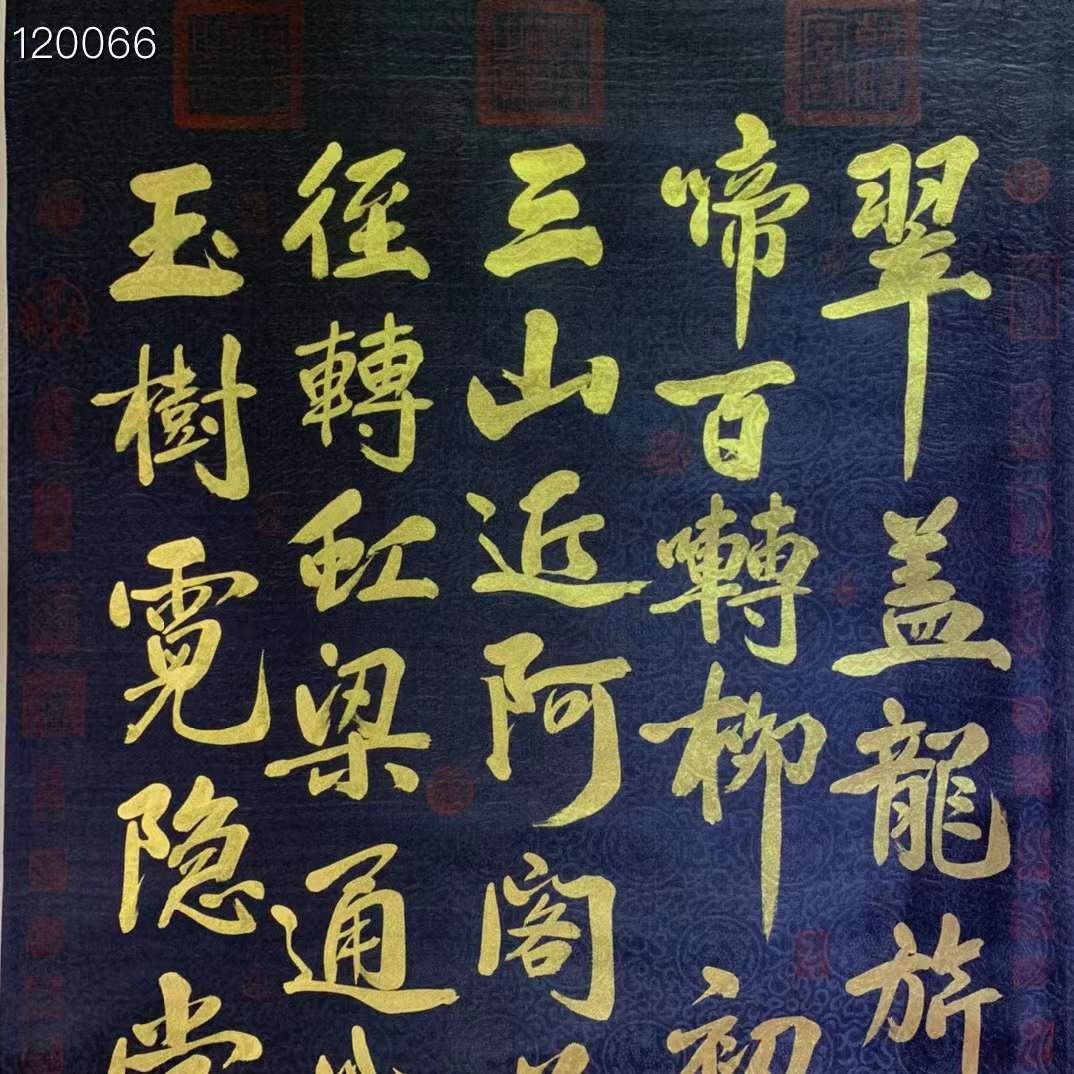 120066
翠盖龍旂
啼百囀柳初
三山近阿閣
径轉虹梁通
玉樹霓隐